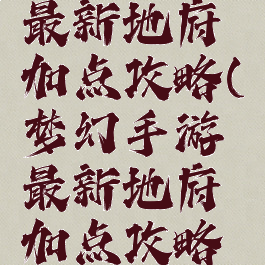 最新地府
加点攻略(
梦幻手游
最新地府
加点攻略